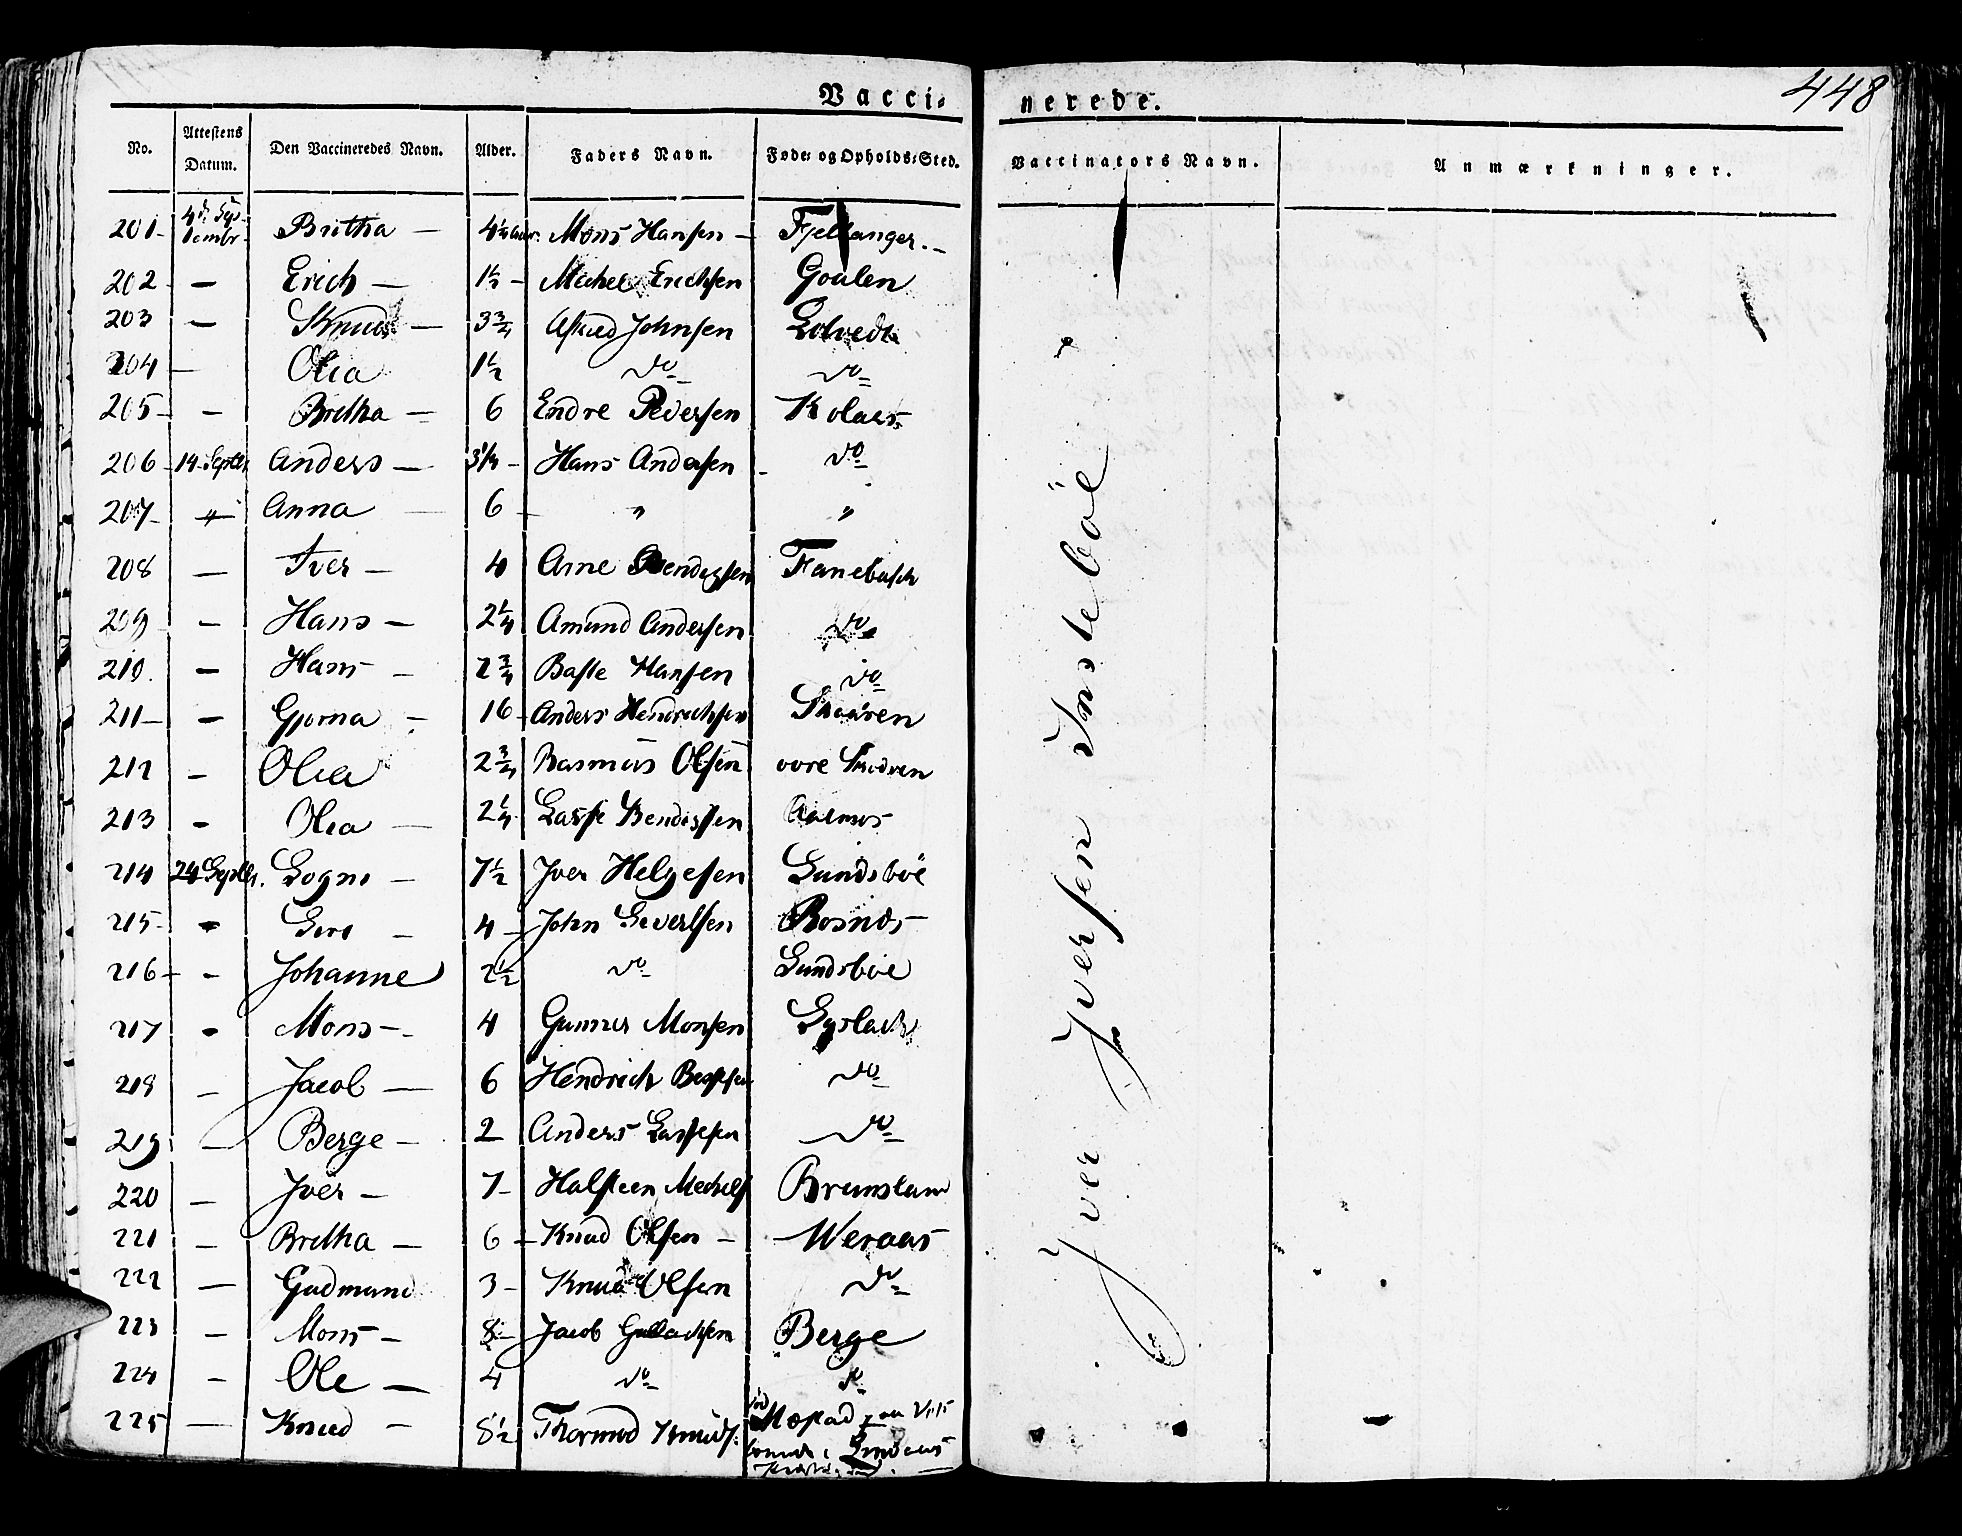 Vacci-
nerede.
448
No. Attestens Datum. Den Vaccineredes Navn. Alder. Faders Navn. Føde- og Opholds-Sted. Vaccinators Navn. Anmærkninger.
201- Britha — 4 Mons Hansen — Fjellanger.
202 - — Erich — 1½ - Michel Erichsen Goalen
203 — Knud — 3¾ Johnsen
204 — Olia 1½ do do
205 - — Britha — 6 Endre Pedersen Kolaas
206 - 14 Septbr Anders — 3¼ - Hans Andersen - do
207 - " Anna — 6 - " "
208 — Iver — 4 Arne Bendixsen Fanebusk
209 — Hans — 2¼ Amund Andersen do
210. — Hans - 2¾ Baste Hansen do
211 — — Gjorna - 16 - Anders Hendrichsen Skodven
212 - Olia 2¾ Rasmus Olsen øvre Skodven
213 - Olia — 2¼ Lasse Bendixsen
214 24 Septbr. 7½ Iver Helgesen Sundsbøe
215 - - — 4 - John Severtsen Rosnæs
216 - - Johanne 2½ do Sundsbøe
217 - Mons - 4 Gunner Monsen
218 - Jacob — 6 Hendrich do
219 — Berge - 2 Anders Lassesen do
220 - Iver - 7 - Halsteen Bremstein
221 - Britha — 6 - Knud Olsen - Weraas
222 — Gudmund 3 - Knud Olsen do
223 - Mons - 8 Jacob Gullachsen Berge
224 - Ole — 4 do do
225 — Knud - 8½ Thormod Knuds:
Iver Iversen Insteböe